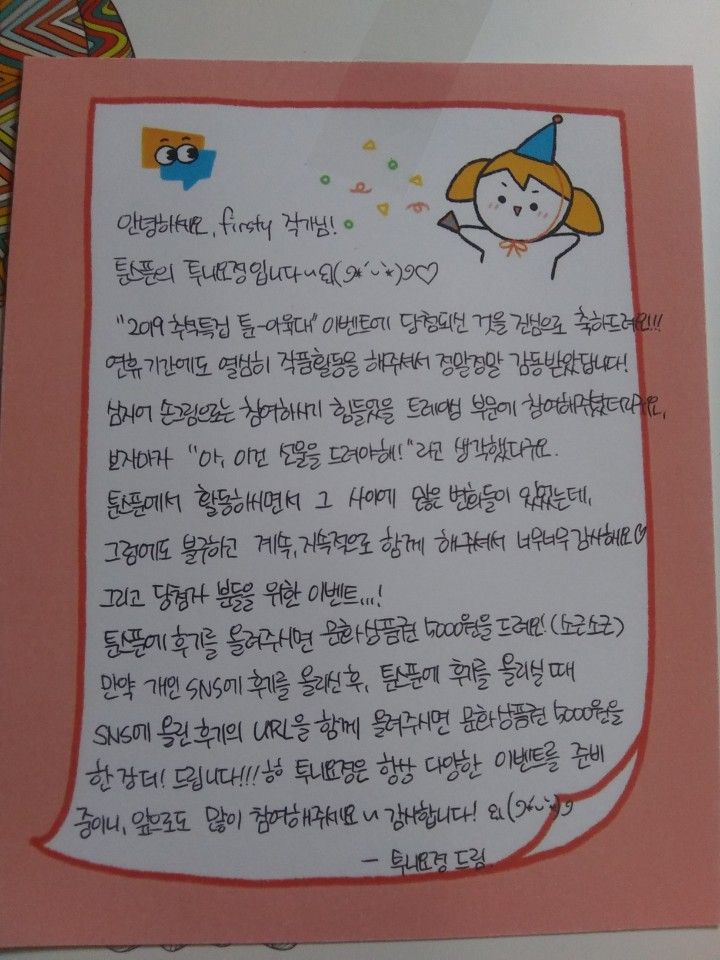 안녕하세요, firsty 작가님!
툰스푼의 투니요정입니다
"2019 추석특집 툰-아육대" 이벤트에 당첨되신 것을 진심으로 축하드려요!!!
연휴기간에도 열심히 작품활동을 해주셔서 정말정말 감동받았답니다!
심지어 손그림으로는 참여하시기 힘들었을 트레이싱 부문에 참여해주셨더라구요,
보자마자 "아, 이건 선물을 드려야해!"라고 생각했다구요.
툰스푼에서 활동하시면서 그 사이에 많은 변화들이 있었는데,
그럼에도 불구하고 계속, 지속적으로 함께 해주셔서 너무너무 감사해요♡
그리고 당첨자 분들을 위한 이벤트...!
툰스푼에 후기를 올려주시면 문화상품권 5000원을 드려요! (소근소근)
만약 개인 SNS에 후기를 올리신 후, 툰스푼에 후기를 올리실 때
SNS에 올린 후기의 URL을 함께 올려주시면 문화상품권 5000원을
한 장 더! 드립니다!!! ㅎㅎ 투니요정은 항상 다양한 이벤트를 준비
중이니, 앞으로도 많이 참여해주세요 감사합니다!
- 투니요정 드림.